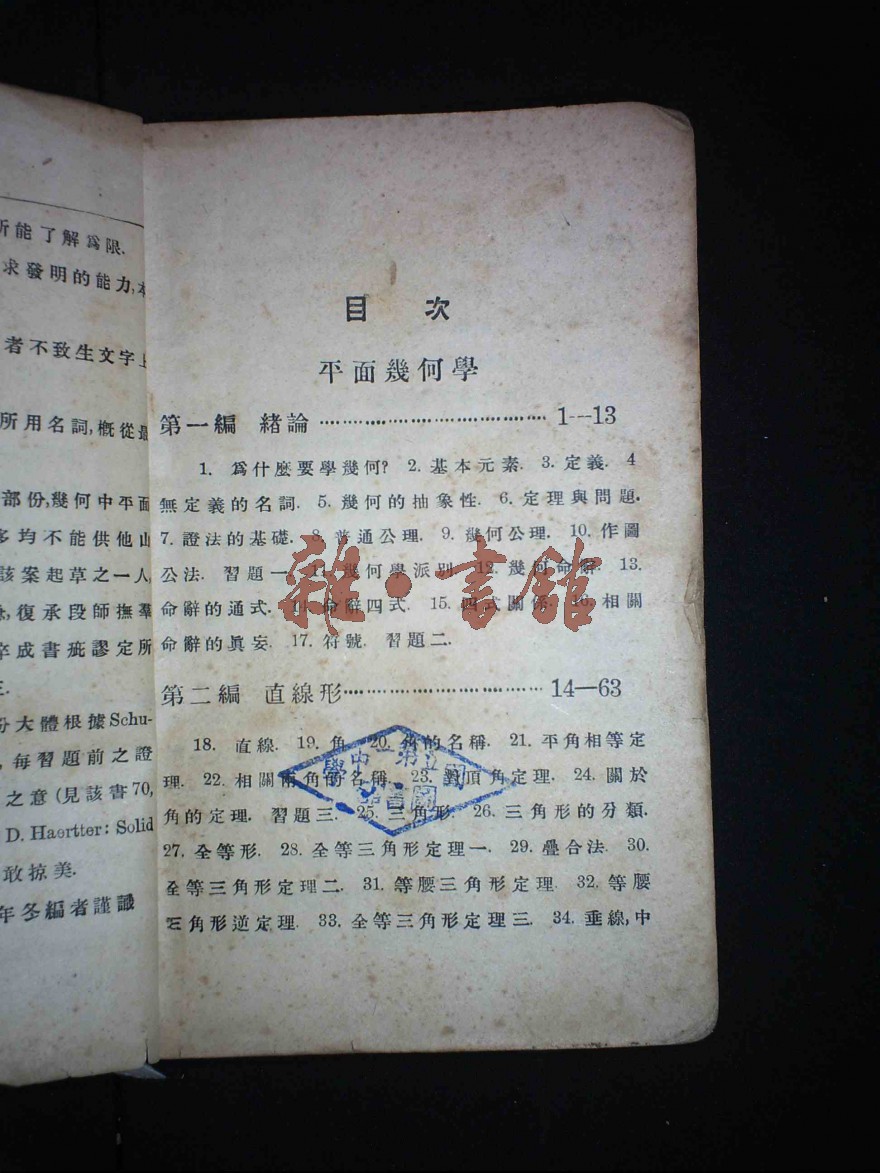 所能了解爲限.
求發明的能力,本
者不致生文字上
所用名詞,概從最
部份,幾何中平面
多均不能供他山
該案起草之一人,
復承段師撫羣
卒成書疵謬定所
份大體根據Schu-
每習題前之證
之意(見該書70,
D. Haertter: Solid
敢掠美.
年冬編者謹識
目 次
平面幾何學
第一編 緒論 1—13
1. 爲什麼要學幾何? 2. 基本元素. 3. 定義. 4
無定義的名詞. 5. 幾何的抽象性. 6. 定理與問題.
7. 證法的基礎. 8. 普通公理. 9. 幾何公理. 10. 作圖
公法. 習題一. 11. 幾何學派別. 12. 幾何命辭. 13.
命辭的通式. 14. 命辭四式. 15. 四式關係. 16. 相關
命辭的眞妄. 17. 符號. 習題二.
第二編 直線形 14—63
18. 直線. 19. 角. 20. 角的名稱. 21. 平角相等定
理. 22. 相關兩角的名稱. 23. 對頂角定理. 24. 關於
角的定理. 習題三. 25. 三角形. 26. 三角形的分類.
27. 全等形. 28. 全等三角形定理一. 29. 疊合法. 30.
全等三角形定理二. 31. 等腰三角形定理. 32. 等腰
三角形逆定理. 33. 全等三角形定理三. 34. 垂線,中
雜·書館
國立第一中學
圖書